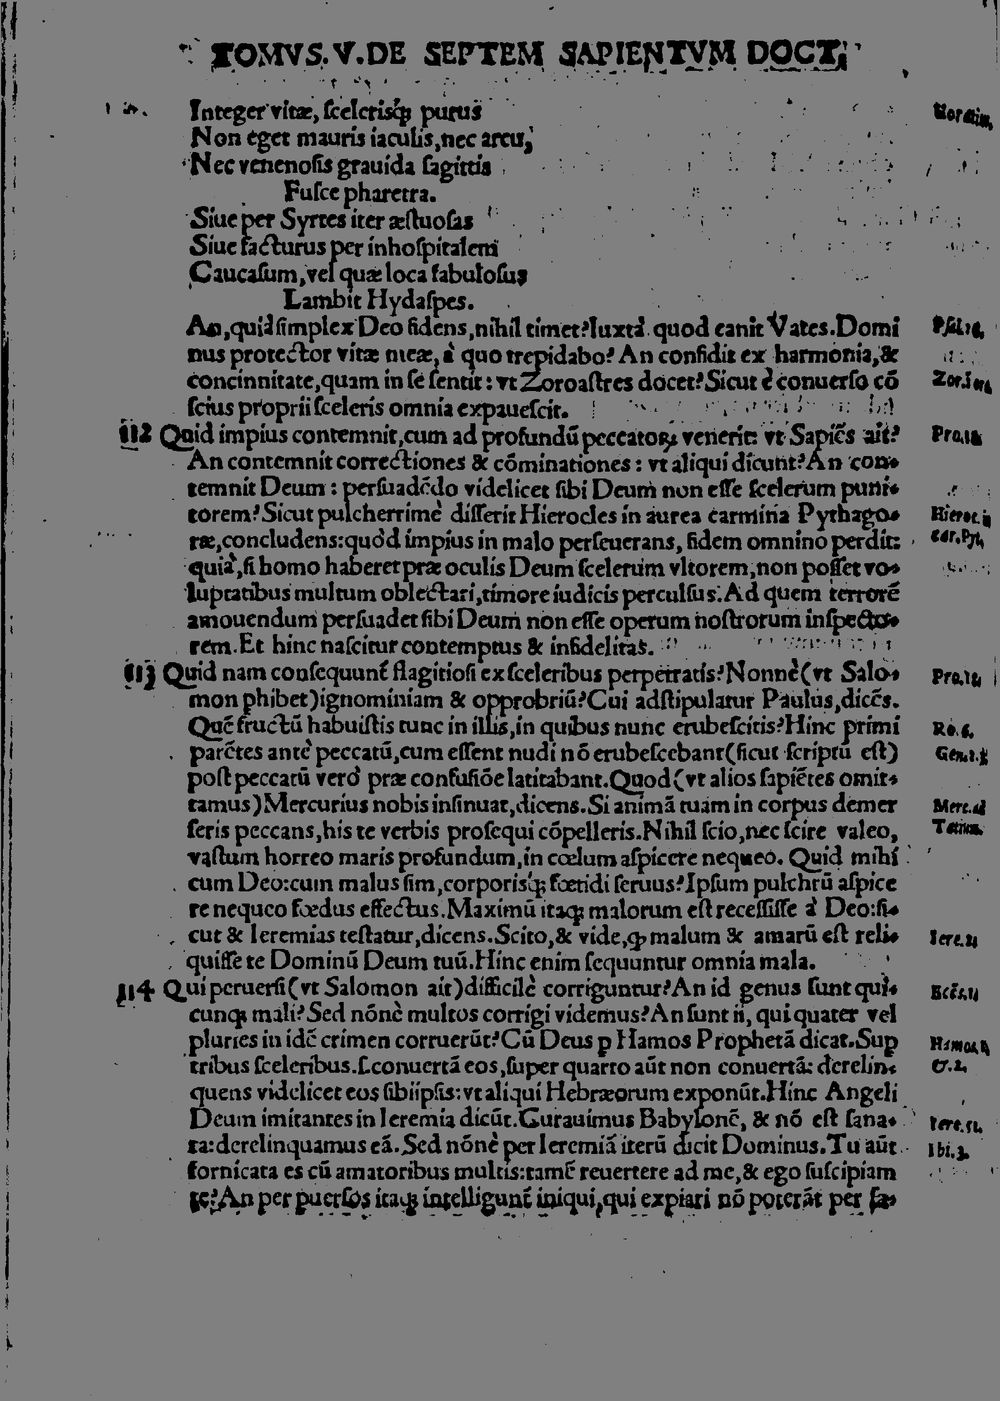 TOMVS. V. DE SEPTEM SAPIENTVM DOCT.
Integer vitæ, scelerisq; purus
Non eget mauris iaculis, nec arcu,
Nec venenosis grauida sagittis
Fusce pharetra.
Siue per Syrtes iter æstuosas
Siue facturus per inhospitalem
Caucasum, vel quæ loca fabulosus
Lambit Hydaspes.
An, quia simplex Deo fidens, nihil timet? Iuxta quod canit Vates. Domi
nus protector vitæ meæ, à quo trepidabo? An confidit ex harmonia, &
concinnitate, quam in se sentit: vt Zoroastres docet? Sicut è conuerso cō
scius proprii sceleris omnia expauescit.
112 Quid impius contemnit, cum ad profundū peccatorꝝ venerit: vt Sapiēs ait?
An contemnit correctiones & cōminationes: vt aliqui dicunt? An con-
temnit Deum: persuadēdo videlicet sibi Deum non esse scelerum puni-
torem? Sicut pulcherrimè disserit Hierocles in aurea carmina Pythago-
ræ, concludens: quòd impius in malo perseuerans, fidem omnino perdit:
quia, si homo haberet præ oculis Deum scelerum vltorem, non posset vo-
luptatibus multum oblectari, timore iudicis perculsus. Ad quem terrorē
amouendum persuadet sibi Deum non esse operum nostrorum inspecto-
rem. Et hinc nascitur contemptus & infidelitas.
113 Quid nam consequunt̄ flagitiosi ex sceleribus perpetratis? Nonnè (vt Salo-
mon phibet) ignominiam & opprobriū? Cui adstipulatur Paulus, dicēs.
Quē fructū habuistis tunc in illis, in quibus nunc erubescitis? Hinc primi
parētes antè peccatū, cum essent nudi nō erubescebant (sicut scriptū est)
post peccatū verò præ confusiōe latitabant. Quod (vt alios sapiētes omit-
tamus) Mercurius nobis insinuat, dicens. Si animā tuam in corpus demer
seris peccans, his te verbis prosequi cōpelleris. Nihil scio, nec scire valeo,
vastum horreo maris profundum, in cœlum aspicere nequeo. Quid mihi
cum Deo: cum malus sim, corporisq; fœtidi seruus? Ipsum pulchrū aspice
re nequeo fœdus effectus. Maximū itaq; malorum est recessisse à Deo: si-
cut & Ieremias testatur, dicens. Scito, & vide, ꝙ malum & amarū est reli-
quisse te Dominū Deum tuū. Hinc enim sequuntur omnia mala.
114 Qui peruersi (vt Salomon ait) difficilè corriguntur? An id genus sunt qui-
cunq; mali? Sed nōnè multos corrigi videmus? An sunt ii, qui quater vel
pluries in idē crimen corruerūt? Cū Deus p Hamos Prophetā dicat. Sup
tribus sceleribus. I. conuertā eos, super quarto aūt non conuertā: derelin-
quens videlicet eos sibiipsis: vt aliqui Hebræorum exponūt. Hinc Angeli
Deum imitantes in Ieremia dicūt. Curauimus Babylonē, & nō est sana-
ta: derelinquamus eā. Sed nōnè per Ieremiā iterū dicit Dominus. Tu aūt
fornicata es cū amatoribus multis: tamē reuertere ad me, & ego suscipiam
te? An per puersos itaq; intelligunt̄ iniqui, qui expiari nō poterāt per sa-
Horatius.
Zor.
Pro.18
Hieroc. in
car. Pyt.
Pro.18
Ro.6.
Merc. ad
Iere.2.
Hamos.
& 2.
Iere.51.
Ibi.3.